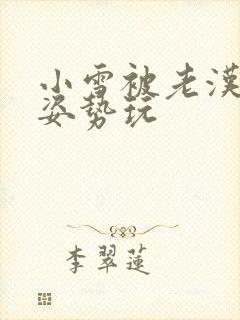 小雪被老漢
姿势玩
李翠莲